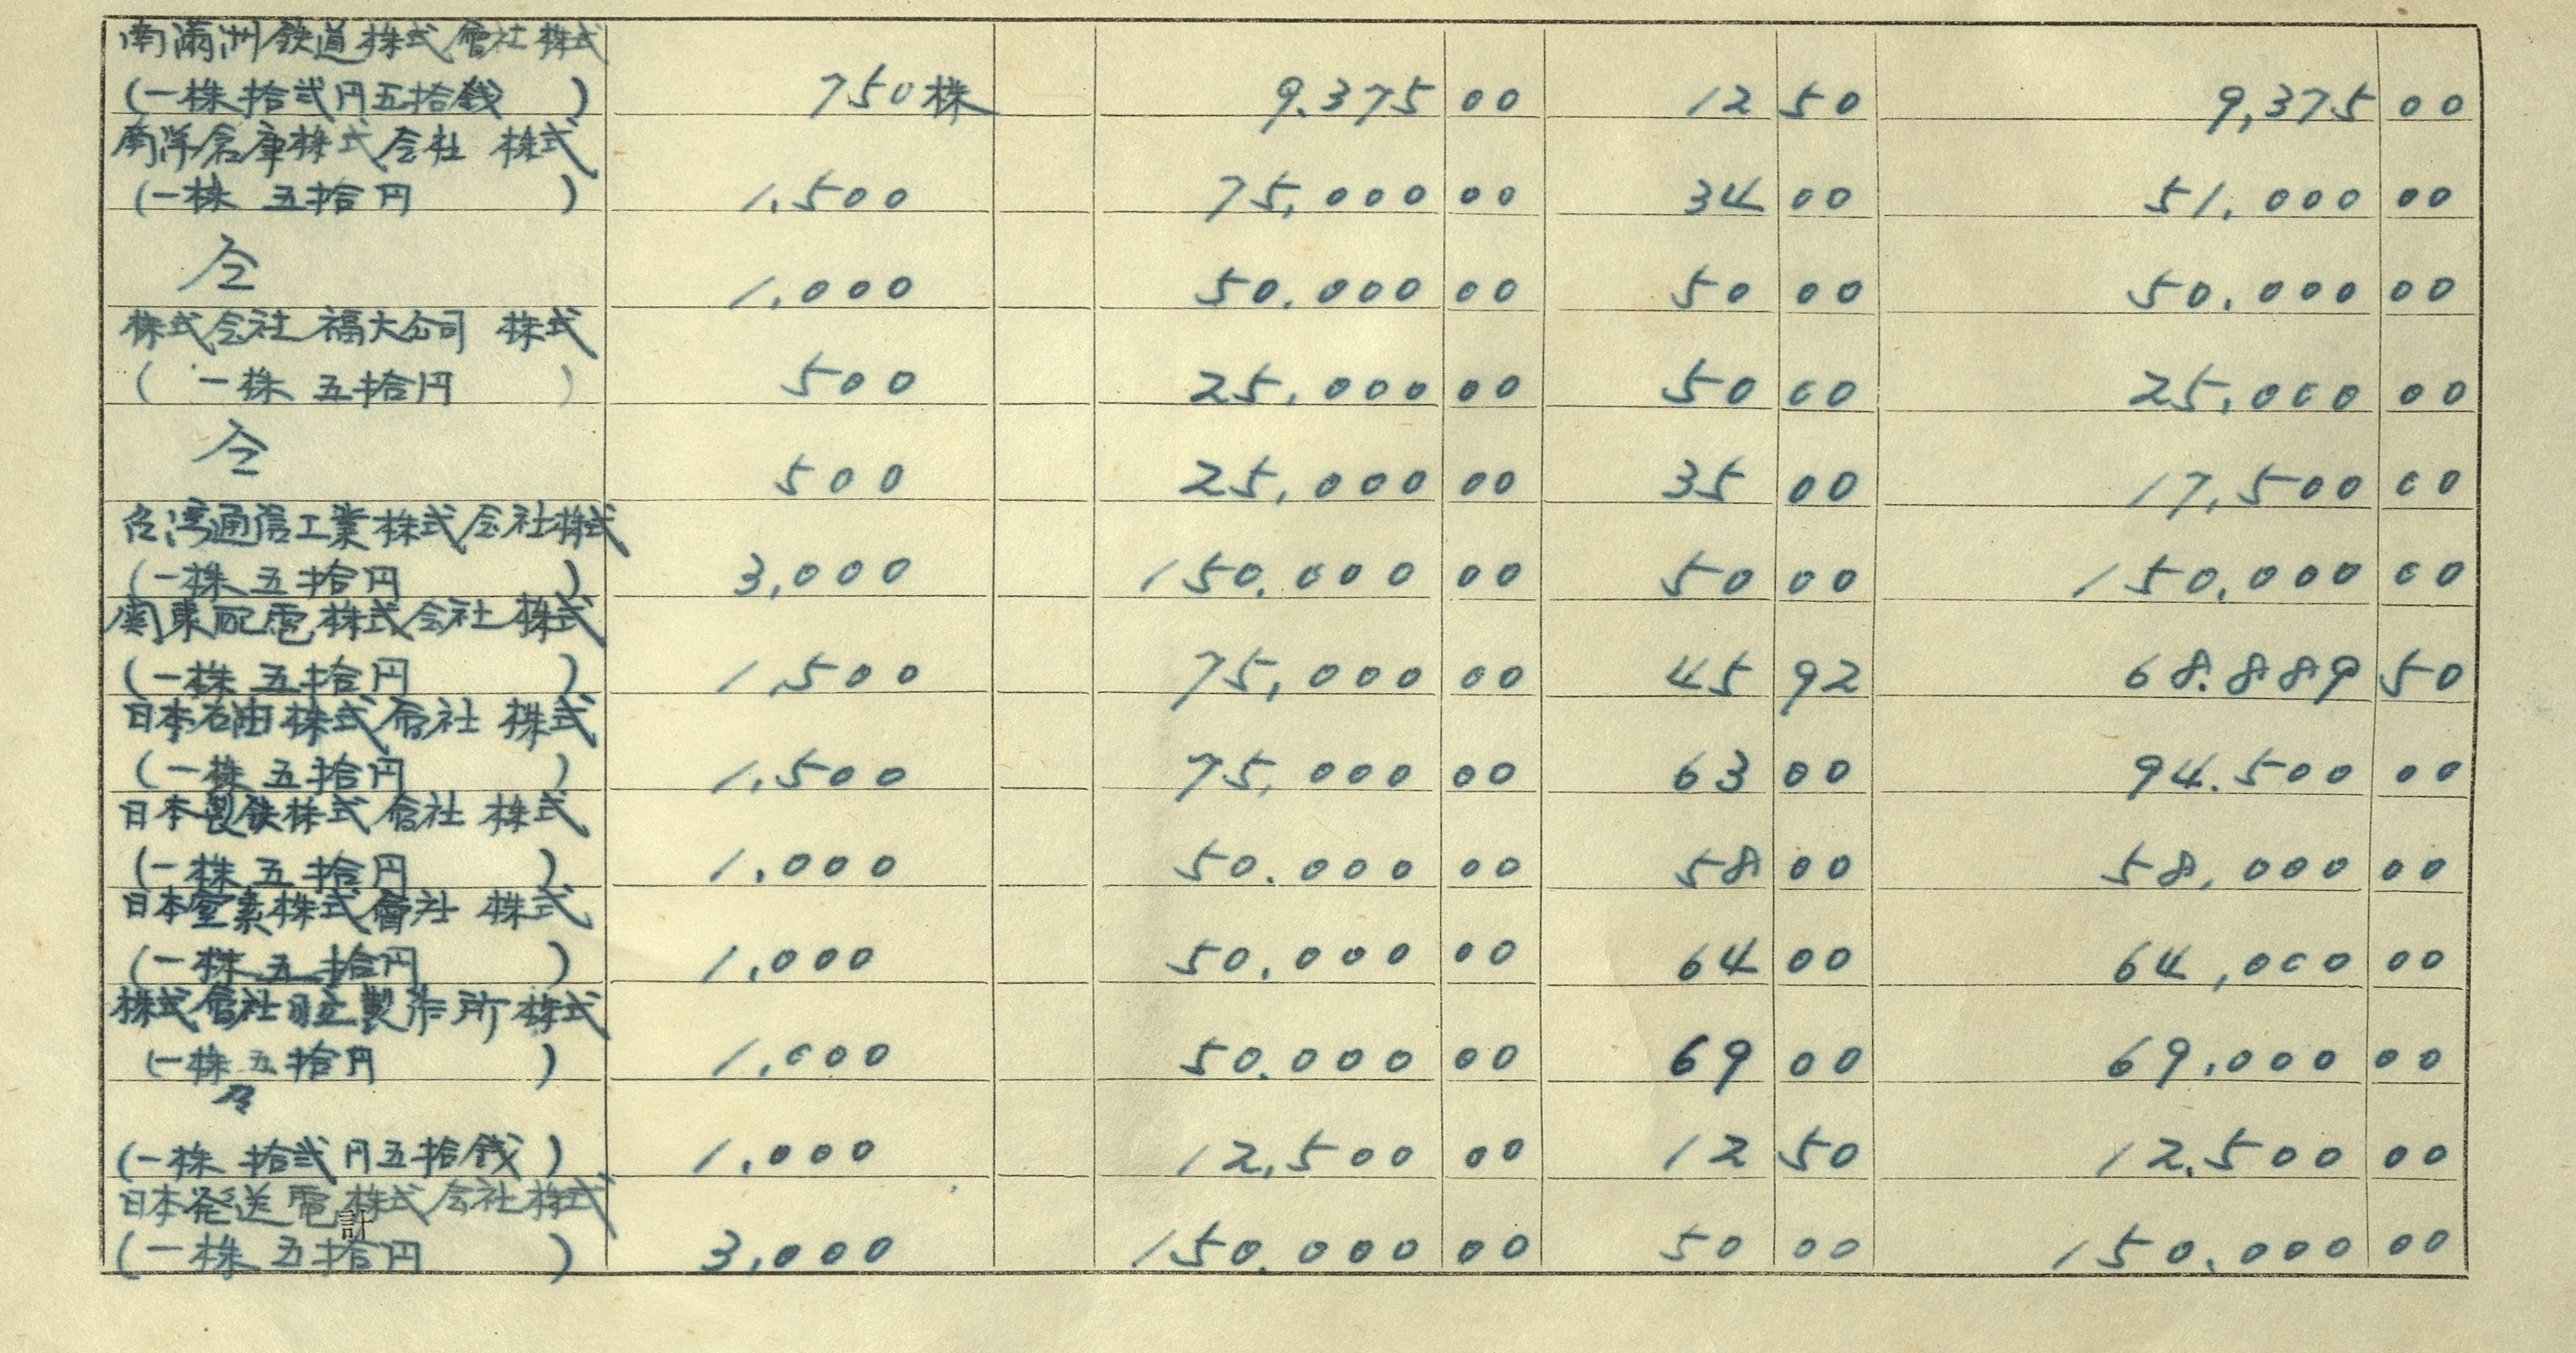 南満洲鉄道株式會社株式
(一株拾弐円五拾銭) 750株 9.375 00 12 50 9,375 00
南洋倉庫株式会社 株式
(一株 五拾円) 1,500 75,000 00 34 00 51,000 00
仝 1,000 50.000 00 50 00 50,000 00
株式会社福大公司 株式
(一株 五拾円) 500 25,000 00 50 00 25,000 00
仝 500 25,000 00 35 00 17,500 00
台湾通信工業株式会社株式
(一株 五拾円) 3,000 150.000 00 50 00 150,000 00
関東配電株式会社 株式
(一株 五拾円) 1,500 75,000 00 45 92 68.889 50
日本石油株式會社 株式
(一株 五拾円) 1,500 75,000 00 63 00 94.500 00
日本製鉄株式會社 株式
(一株 五拾円) 1,000 50.000 00 58 00 58,000 00
日本窒素株式會社 株式
(一株 五拾円) 1,000 50,000 00 64 00 64,000 00
株式會社日立製作所株式
(一株 五拾円) 1,000 50.000 00 69 00 69,000 00
(一株 拾弐円五拾銭) 1,000 12,500 00 12 50 12,500 00
日本発送電株式会社株式
計
(一株 五拾円) 3,000 150.000 00 50 00 150,000 00